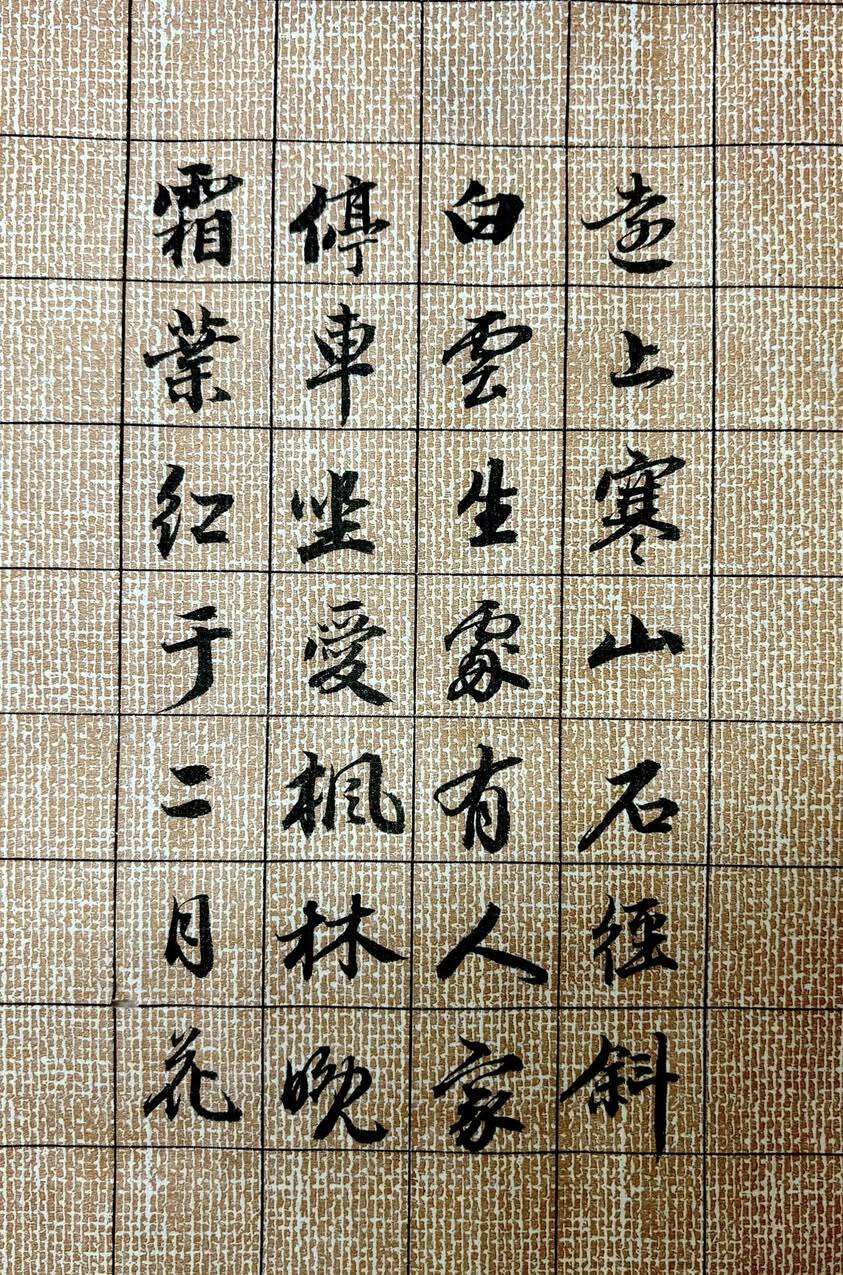 遠上寒山石徑斜
白雲生處有人家
停車坐愛楓林晚
霜葉红于二月花